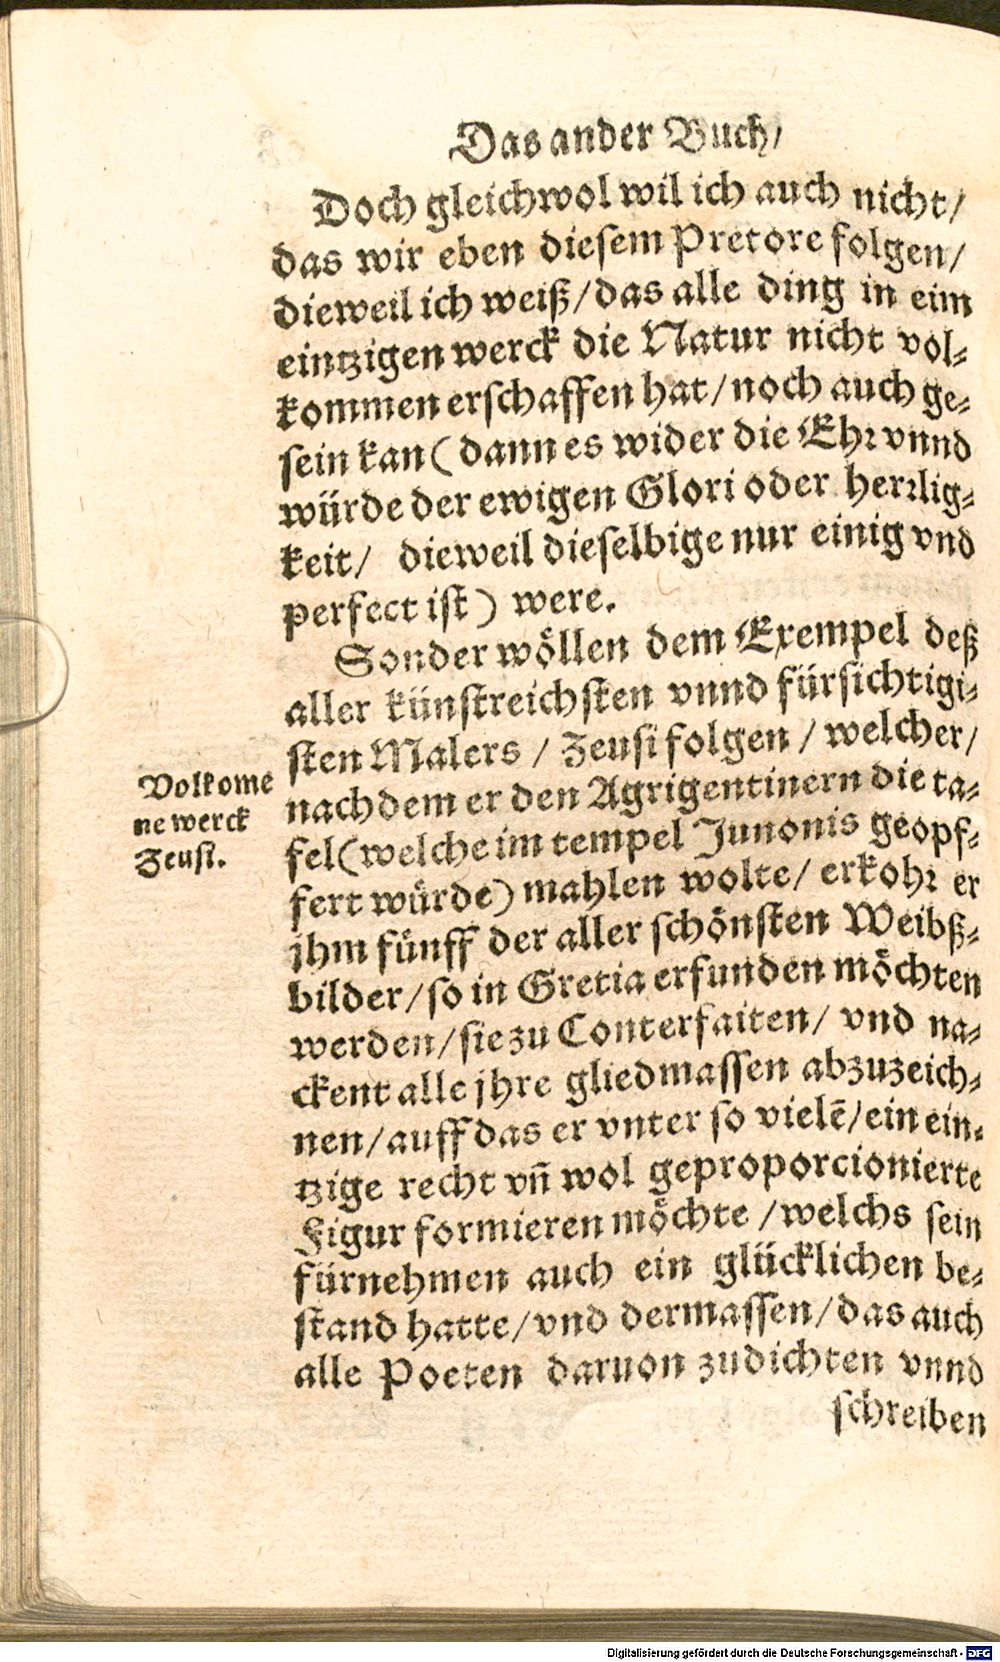 Das ander Buch/
Doch gleichwol wil ich auch nicht/
das wir eben diesem Pretore folgen/
dieweil ich weiß/das alle ding in eim
eintzigen werck die Natur nicht vol-
kommen erschaffen hat/noch auch ge-
sein kan(dann es wider die Ehr vnnd
würde der ewigen Glori oder herrlig-
keit/ dieweil dieselbige nur einig vnd
perfect ist) were.
Sonder wöllen dem Exempel deß
aller künstreichsten vnnd fürsichtigi-
sten Malers / Zeusi folgen / welcher/
Volkome
ne werck
Zeusi.
nach dem er den Agrigentinern die ta-
fel(welche im tempel Junonis geopf-
fert würde) mahlen wolte/ erkohr er
jhm fünff der aller schönsten Weibß-
bilder/so in Gretia erfunden möchten
werden/sie zu Conterfaiten/ vnd na-
ckent alle jhre gliedmassen abzuzeich-
nen/auff das er vnter so vielē/ein ein-
tzige recht vñ wol geproporcionierte
Figur formieren möchte /welchs sein
fürnehmen auch ein glücklichen be-
stand hatte/vnd dermassen/das auch
alle Poeten daruon zudichten vnnd
schreiben
Digitalisierung gefördert durch die Deutsche Forschungsgemeinschaft - DFG